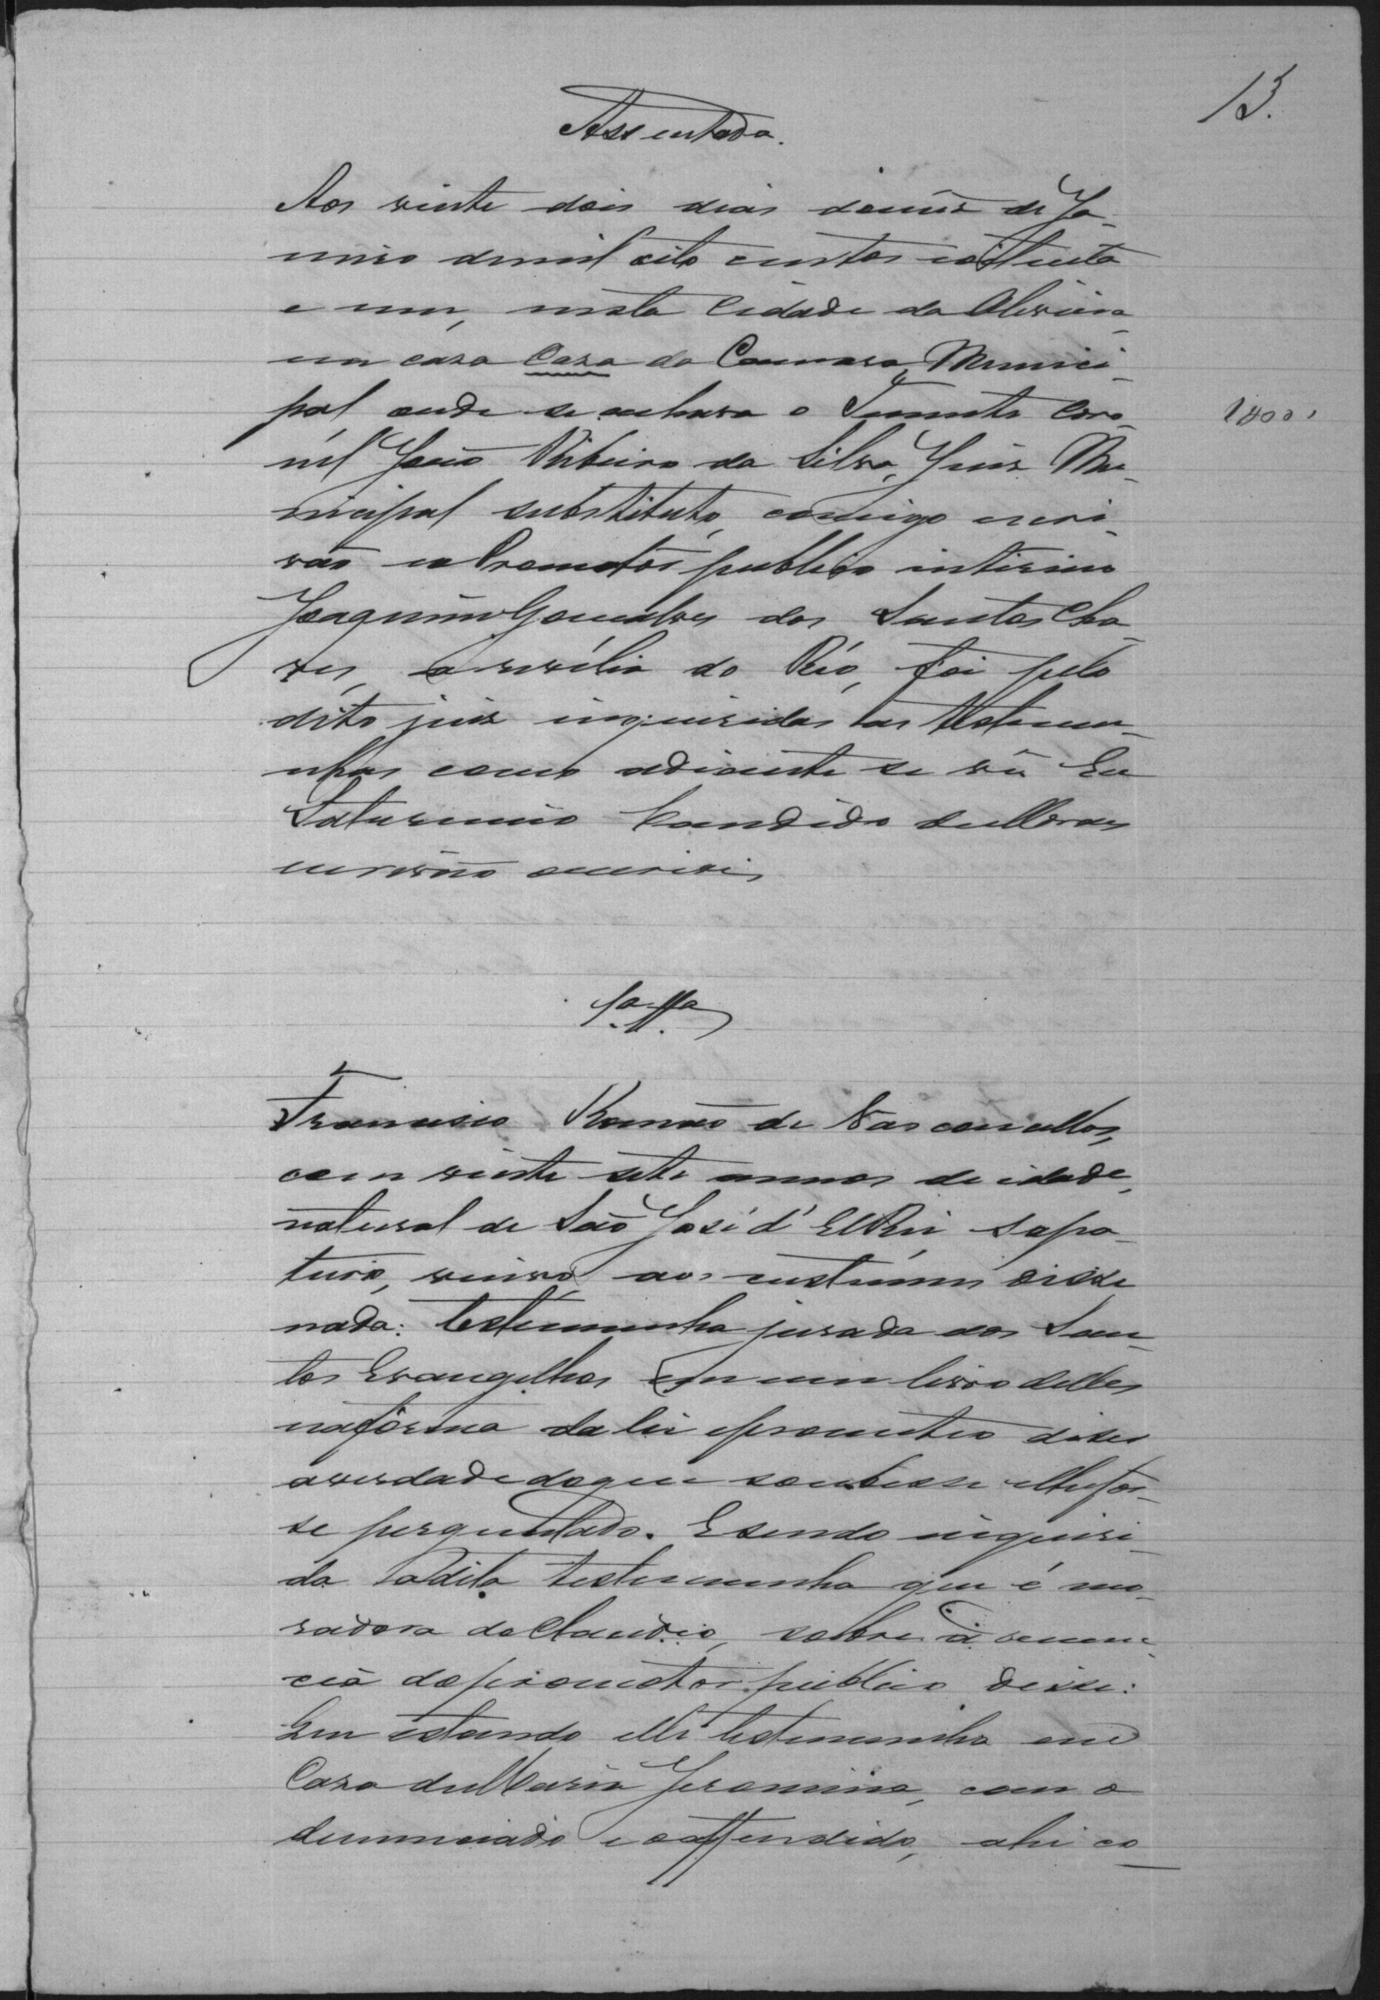 13.
Assentada.
Aos vinte dois dias do mez de Ja-
neiro de mil oito centos e oitenta
e um, nesta Cidade da Oliveira
em casa Casa da Camara Munici-
pal onde se achava o Tenente Coro-
1$000
nel João Ribeiro da Silva, Juiz Mu-
nicipal substituto, comigo escri-
vão e o Promotor publico interino
Joaquim Gonçalves dos Santos Cha-
ves, a revelia do Réo, foi pelo
dito juiz inquiridas as testemu-
nhas como adiante se vê Eu
Saturnino Candido de Moraes
escrivão escrevi
1.ª T.ª
Francisco Romão de Vasconcellos,
com vinte sete annos de idade,
natural de São José d'El Rei sapa-
teiro, viuvo, aos custumes disse
nada: testemunha jurada aos San-
tos Evangelhos em um livro delles
na forma da lei e prometteo dizer
a verdade do que soubesse e lhe fos-
se perguntado. E sendo inquiri-
da a dita testemunha que é mo-
radora do Claudio, sobre a denun-
cia do promotor publico disse:
Que estando elle testemunha em
Casa de Maria Jeronima, com o
denunciado e o offendido, ahi co-